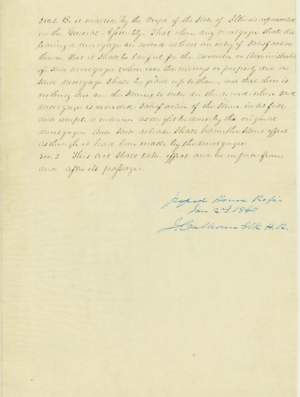 Sect. 1. Be it enacted by the People of the State of Illinois represented
in the General Assembly That when any Mortgagee shall die
leaving a mortgage on record without an entry of satisfaction
thereon that it shall be lawful for the Executor or Administrator
of said Mortgagee when ever the moneys or property due on
said Mortgage shall be paid up to them and that there is
nothing due on the same to enter on the record where said
Mortgage is recorded satisfaction of the same in as full
and ample a manner as might be done by the original
Mortgagee And said release shall have the same effect
as though it had been made by the Mortgagee
Sec. 2 This act shall take effect and be in force from
and after its passage
House Reps
Jan 2nd 1840
J. Calhoun Clk H.R.